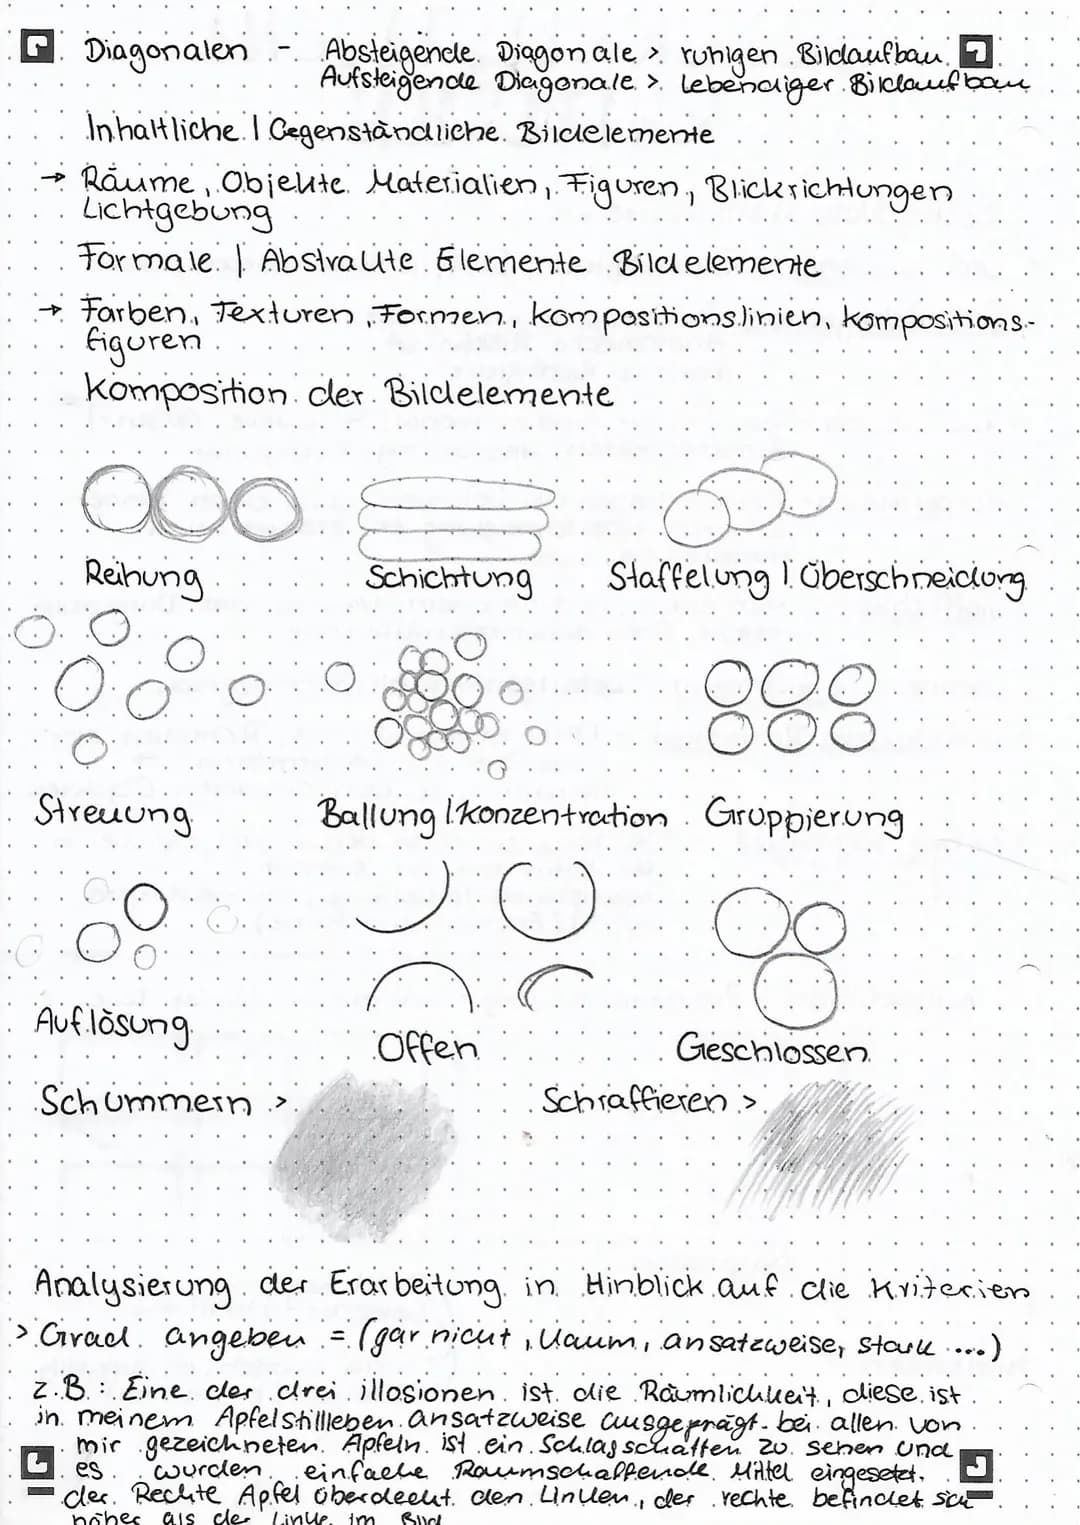 Diagonalen - Absteigende Diagonale > ruhigen Bildaufbau
Aufsteigende Diagonale > Lebendiger Bildaufbau
Inhaltliche | Gegenständliche Bildelemente
→ Räume, Objekte Materialien, Figuren, Blickrichtungen
Lichtgebung
Formale | Abstrakte Elemente Bildelemente
→ Farben, Texturen, Formen, Kompositionslinien, Kompositions-
figuren
Komposition der Bildelemente
Reihung Schichtung Staffelung | Überschneidung
Streuung Ballung | Konzentration Gruppierung
Auflösung Offen Geschlossen
Schummern > Schraffieren >
Analysierung der Erarbeitung in Hinblick auf die Kriterien
> Grad angeben = (gar nicht, kaum, ansatzweise, stark ...)
z.B.: Eine der drei illosionen ist die Räumlichkeit, diese ist
in meinem Apfelstillleben ansatzweise ausgeprägt. bei allen von
mir gezeichneten Äpfeln ist ein Schlagschatten zu sehen und
es wurden einfache Raumschaffende Mittel eingesetzt.
der Rechte Apfel überdeckt den Linken, der rechte befindet sich
näher als der Linke im Bild